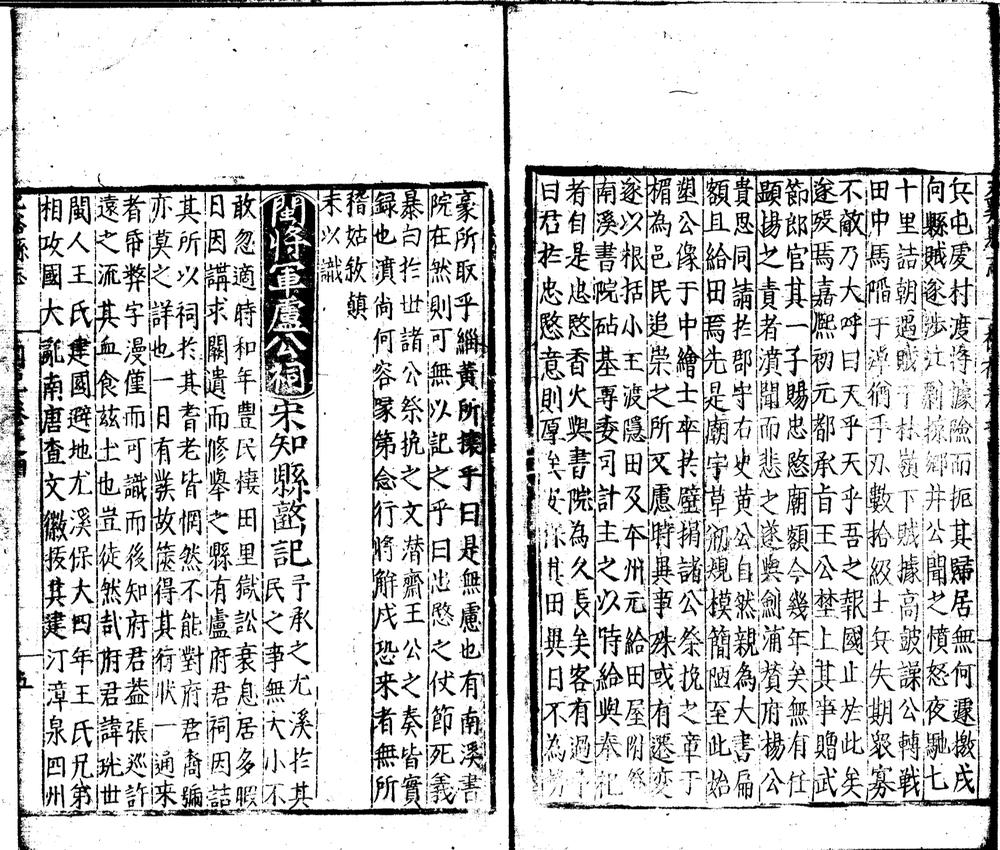 兵屯處村渡將據險而扼其歸居無何遽撤戍
向縣賊遂涉江剽掠鄉井公聞之憤怒夜馳七
十里詰朝遇賊于林嶺下賊據高設謀公轉戰
田中馬陷于淖猶手刃數拾級士兵失期眾寡
不敵乃大呼曰天乎天乎吾之報國止於此矣
遂歿焉嘉熙初元都承旨王公埜上其事贈武
節郎官其一子賜忠愍廟額今幾年矣無有任
顯揚之責者濆聞而悲之遂與劍浦贊府楊公
貴思同請於郡守右史黄公自然親為大書扁
額且給田焉先是廟宇草創規模簡陋至此始
塑公像于中繪士卒於壁揭諸公祭挽之章于
楣為邑民追崇之所又慮時異事殊或有遷變
遂以根括小王渡隱田及本州元給田屋附
南溪書院砧基專委司計主之以時給與奉祀
者自是忠愍香火與書院為久長矣客有過
曰君於忠愍意則厚矣 其田異日不為
豪所取乎緇黄所攘乎曰是無慮也有南溪書
院在然則可無以記之乎曰忠愍之仗節死義
暴白於世諸公祭挽之文潜齋王公之奏皆實
録也濆尚何容喙第念行將解戍恐來者無所
稽姑敘顛
末以識
閩將軍盧公祠宋知縣 記 予承之尤溪於其民之事無大小不
敢忽適時和年豊民棲田里獄訟衰息居多暇
日因講求闕遺而修舉之縣有盧府君祠因詰
其所以祠於其耆老皆惘然不能對府君裔
亦莫之詳也一日有業故篋得其行狀一通來
者昏弊字漫僅而可識而後知府君葢張巡許
遠之流其血食兹土也豈徒然哉府君諱琇世
閩人王氏建國避地尤溪保大四年王氏兄弟
相攻國大亂南唐查文徽拔其建汀漳泉四州